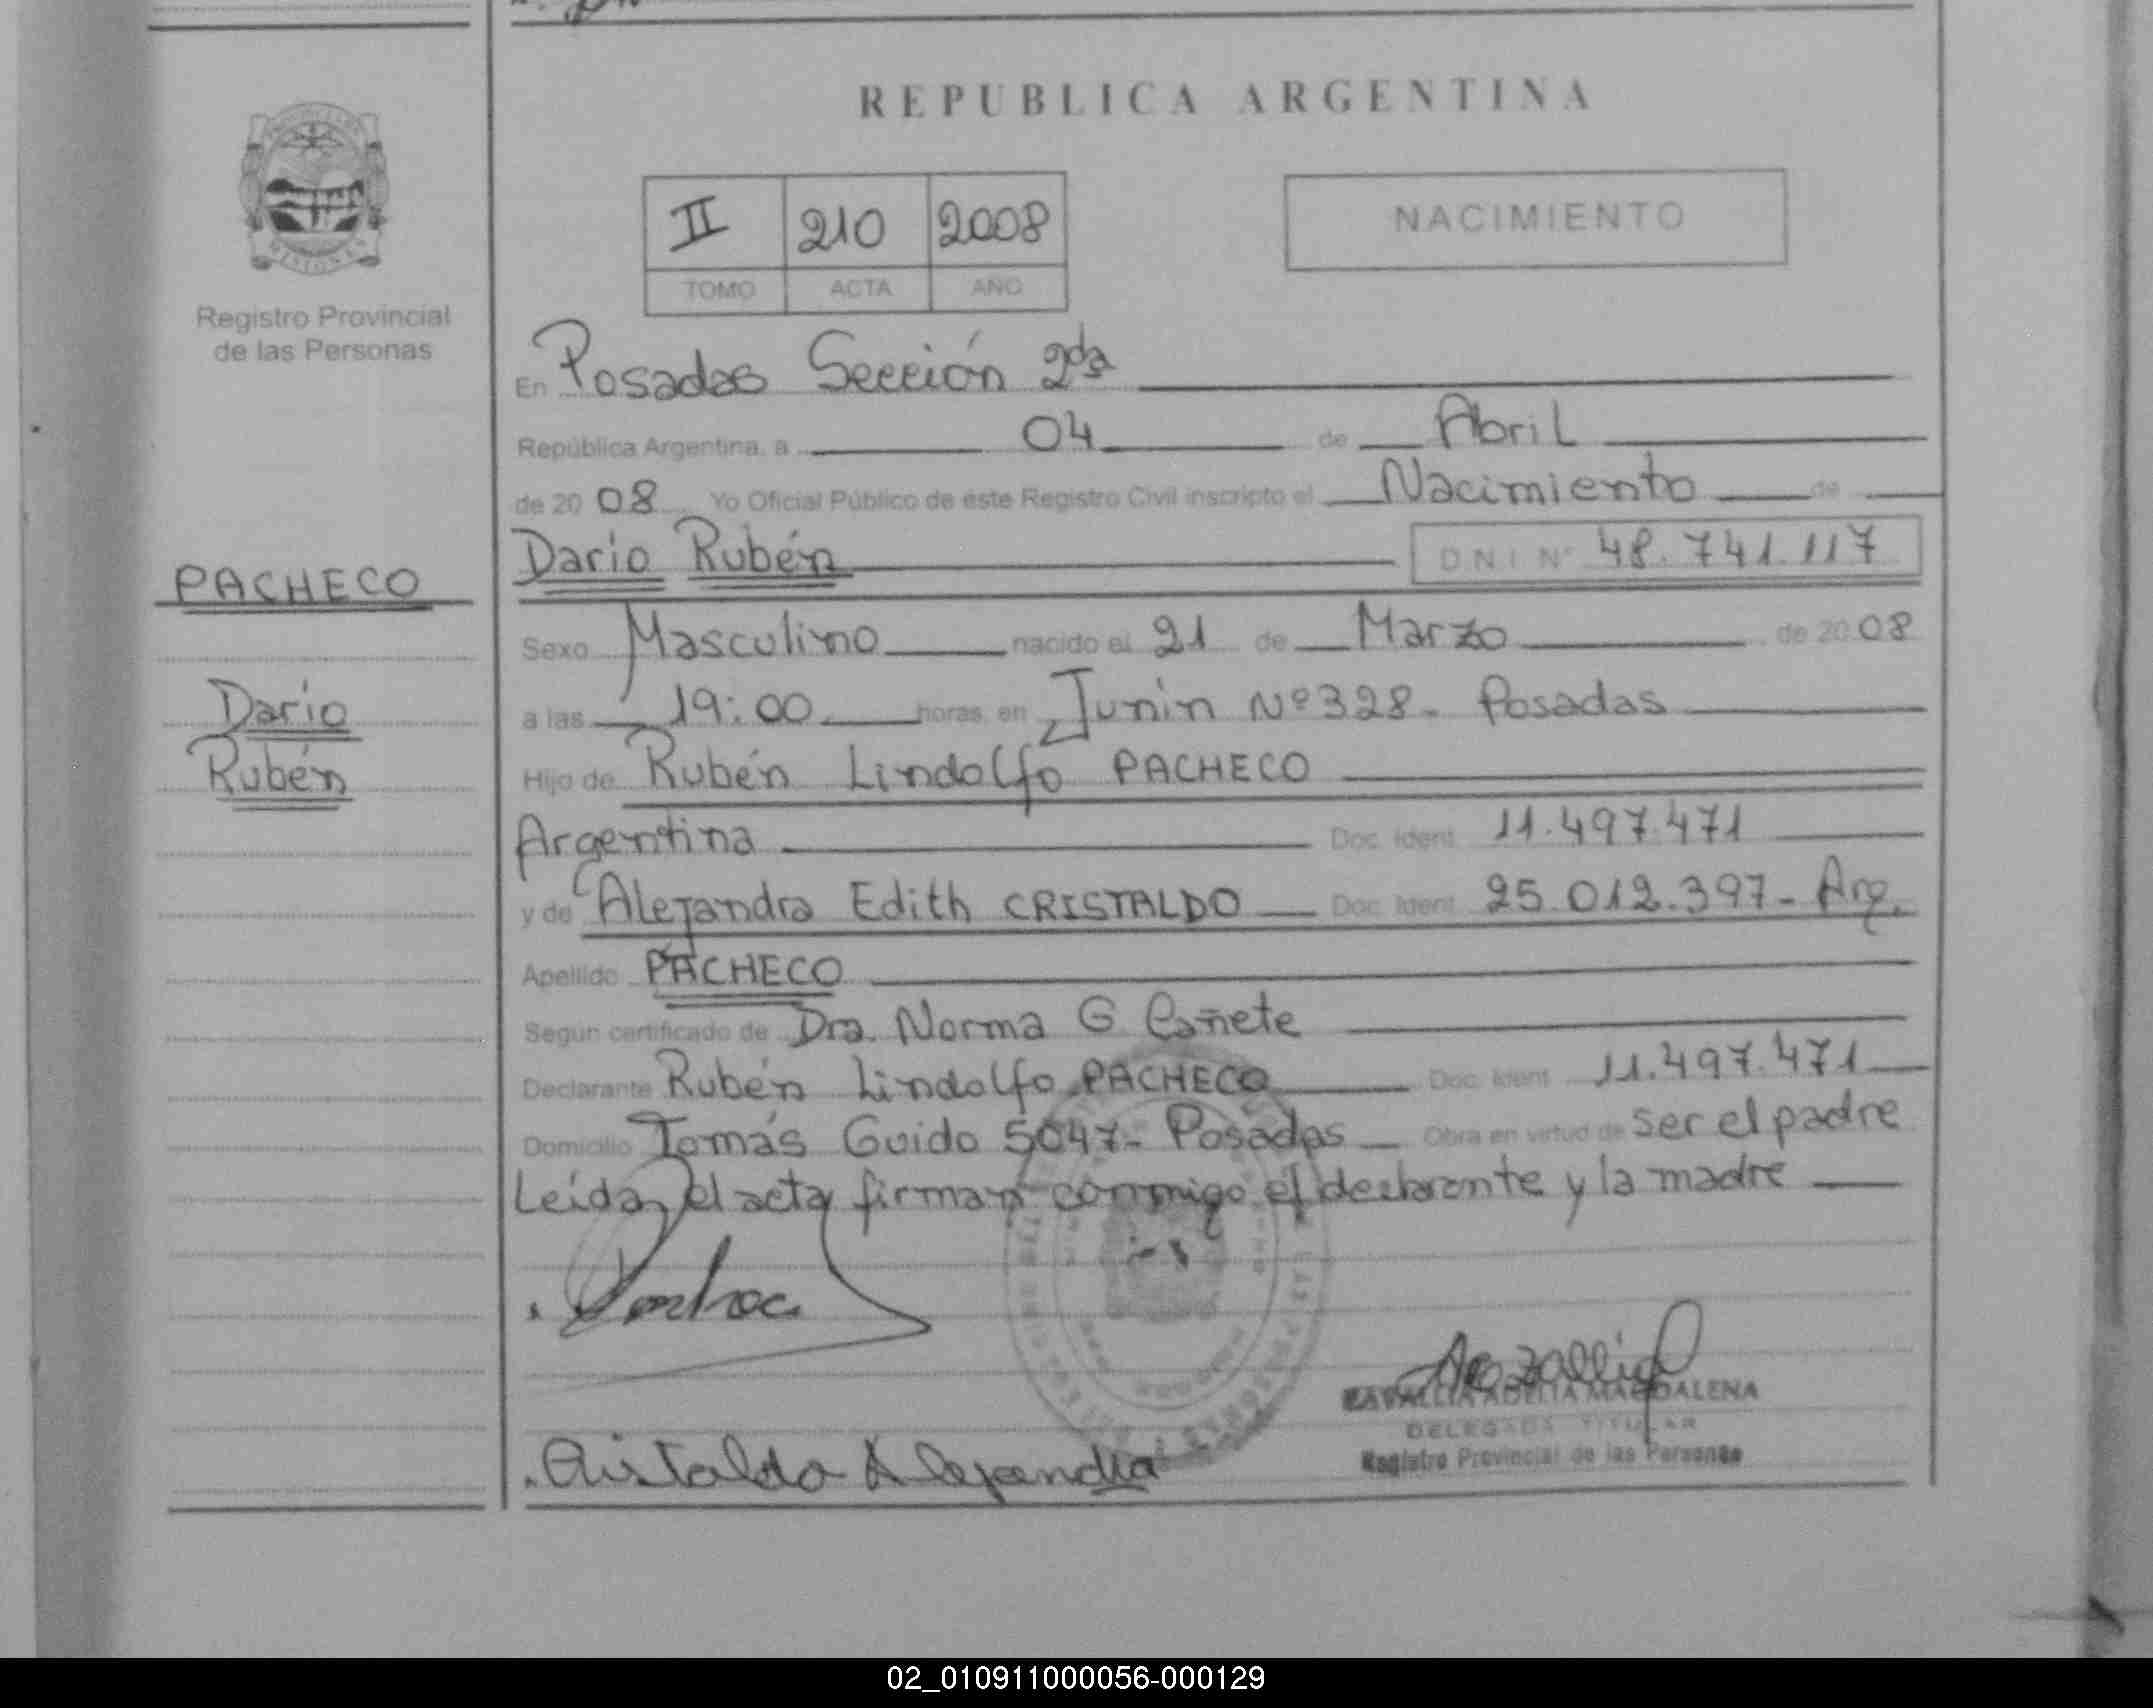 REPUBLICA ARGENTINA
II 210 2008
TOMO ACTA AÑO
NACIMIENTO
MISIONES
Registro Provincial
de las Personas
En Posadas Sección 2da
República Argentina, a 04 de Abril
de 2008 Yo Oficial Público de éste Registro Civil inscripto el Nacimiento de
PACHECO
Dario
Rubén
Dario Rubén D N I Nº 48.741.117
Sexo Masculino nacido el 21 de Marzo de 2008
a las 19:00 horas, en Junin Nº 328- Posadas
Hijo de Rubén Lindolfo PACHECO
Argentina Doc. Ident. 11.497.471
y de Alejandra Edith CRISTALDO Doc. Ident. 25.012.397- Arg.
Apellido PACHECO
Segun certificado de Dra. Norma G Cañete
Declarante Rubén Lindolfo PACHECO Doc. Ident. 11.497.471
Domicilio Tomás Guido 5047- Posadas Obra en virtud de ser el padre
Leída el acta firman conmigo el declarante y la madre
ADELIA MAGDALENA
DELEGADA TITULAR
Registro Provincial de las Personas
Cristaldo Alejandra
02_010911000056-000129